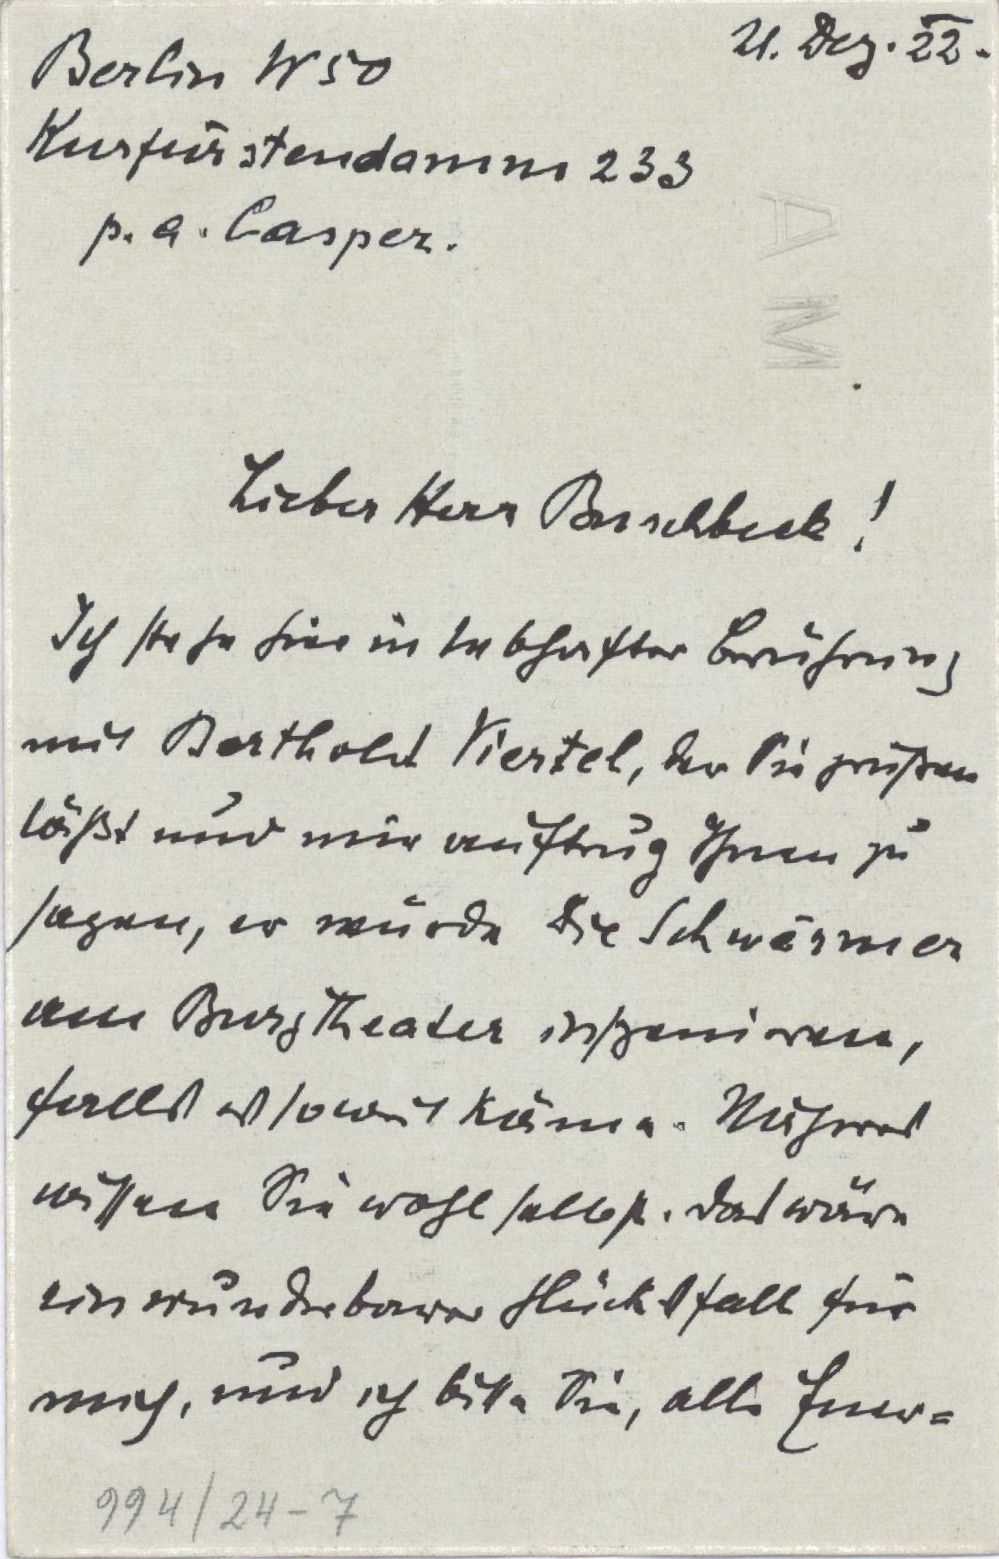 21. Dez. 22.
Berlin W 50
Kurfürstendamm 233
p. a. Casper.
Lieber Herr Buschbeck!
Ich stehe hier in lebhafter Berührung
mit Berthold Viertel, der Sie grüßen
läßt und mir auftrug Ihnen zu
sagen, er würde Die Schwärmer
am Burgtheater inszenieren,
falls es soweit käme. Näheres
wissen Sie wohl selbst. Das wäre
ein wunderbarer Glücksfall für
mich, und ich bitte Sie, alle Ener=
994/24-7